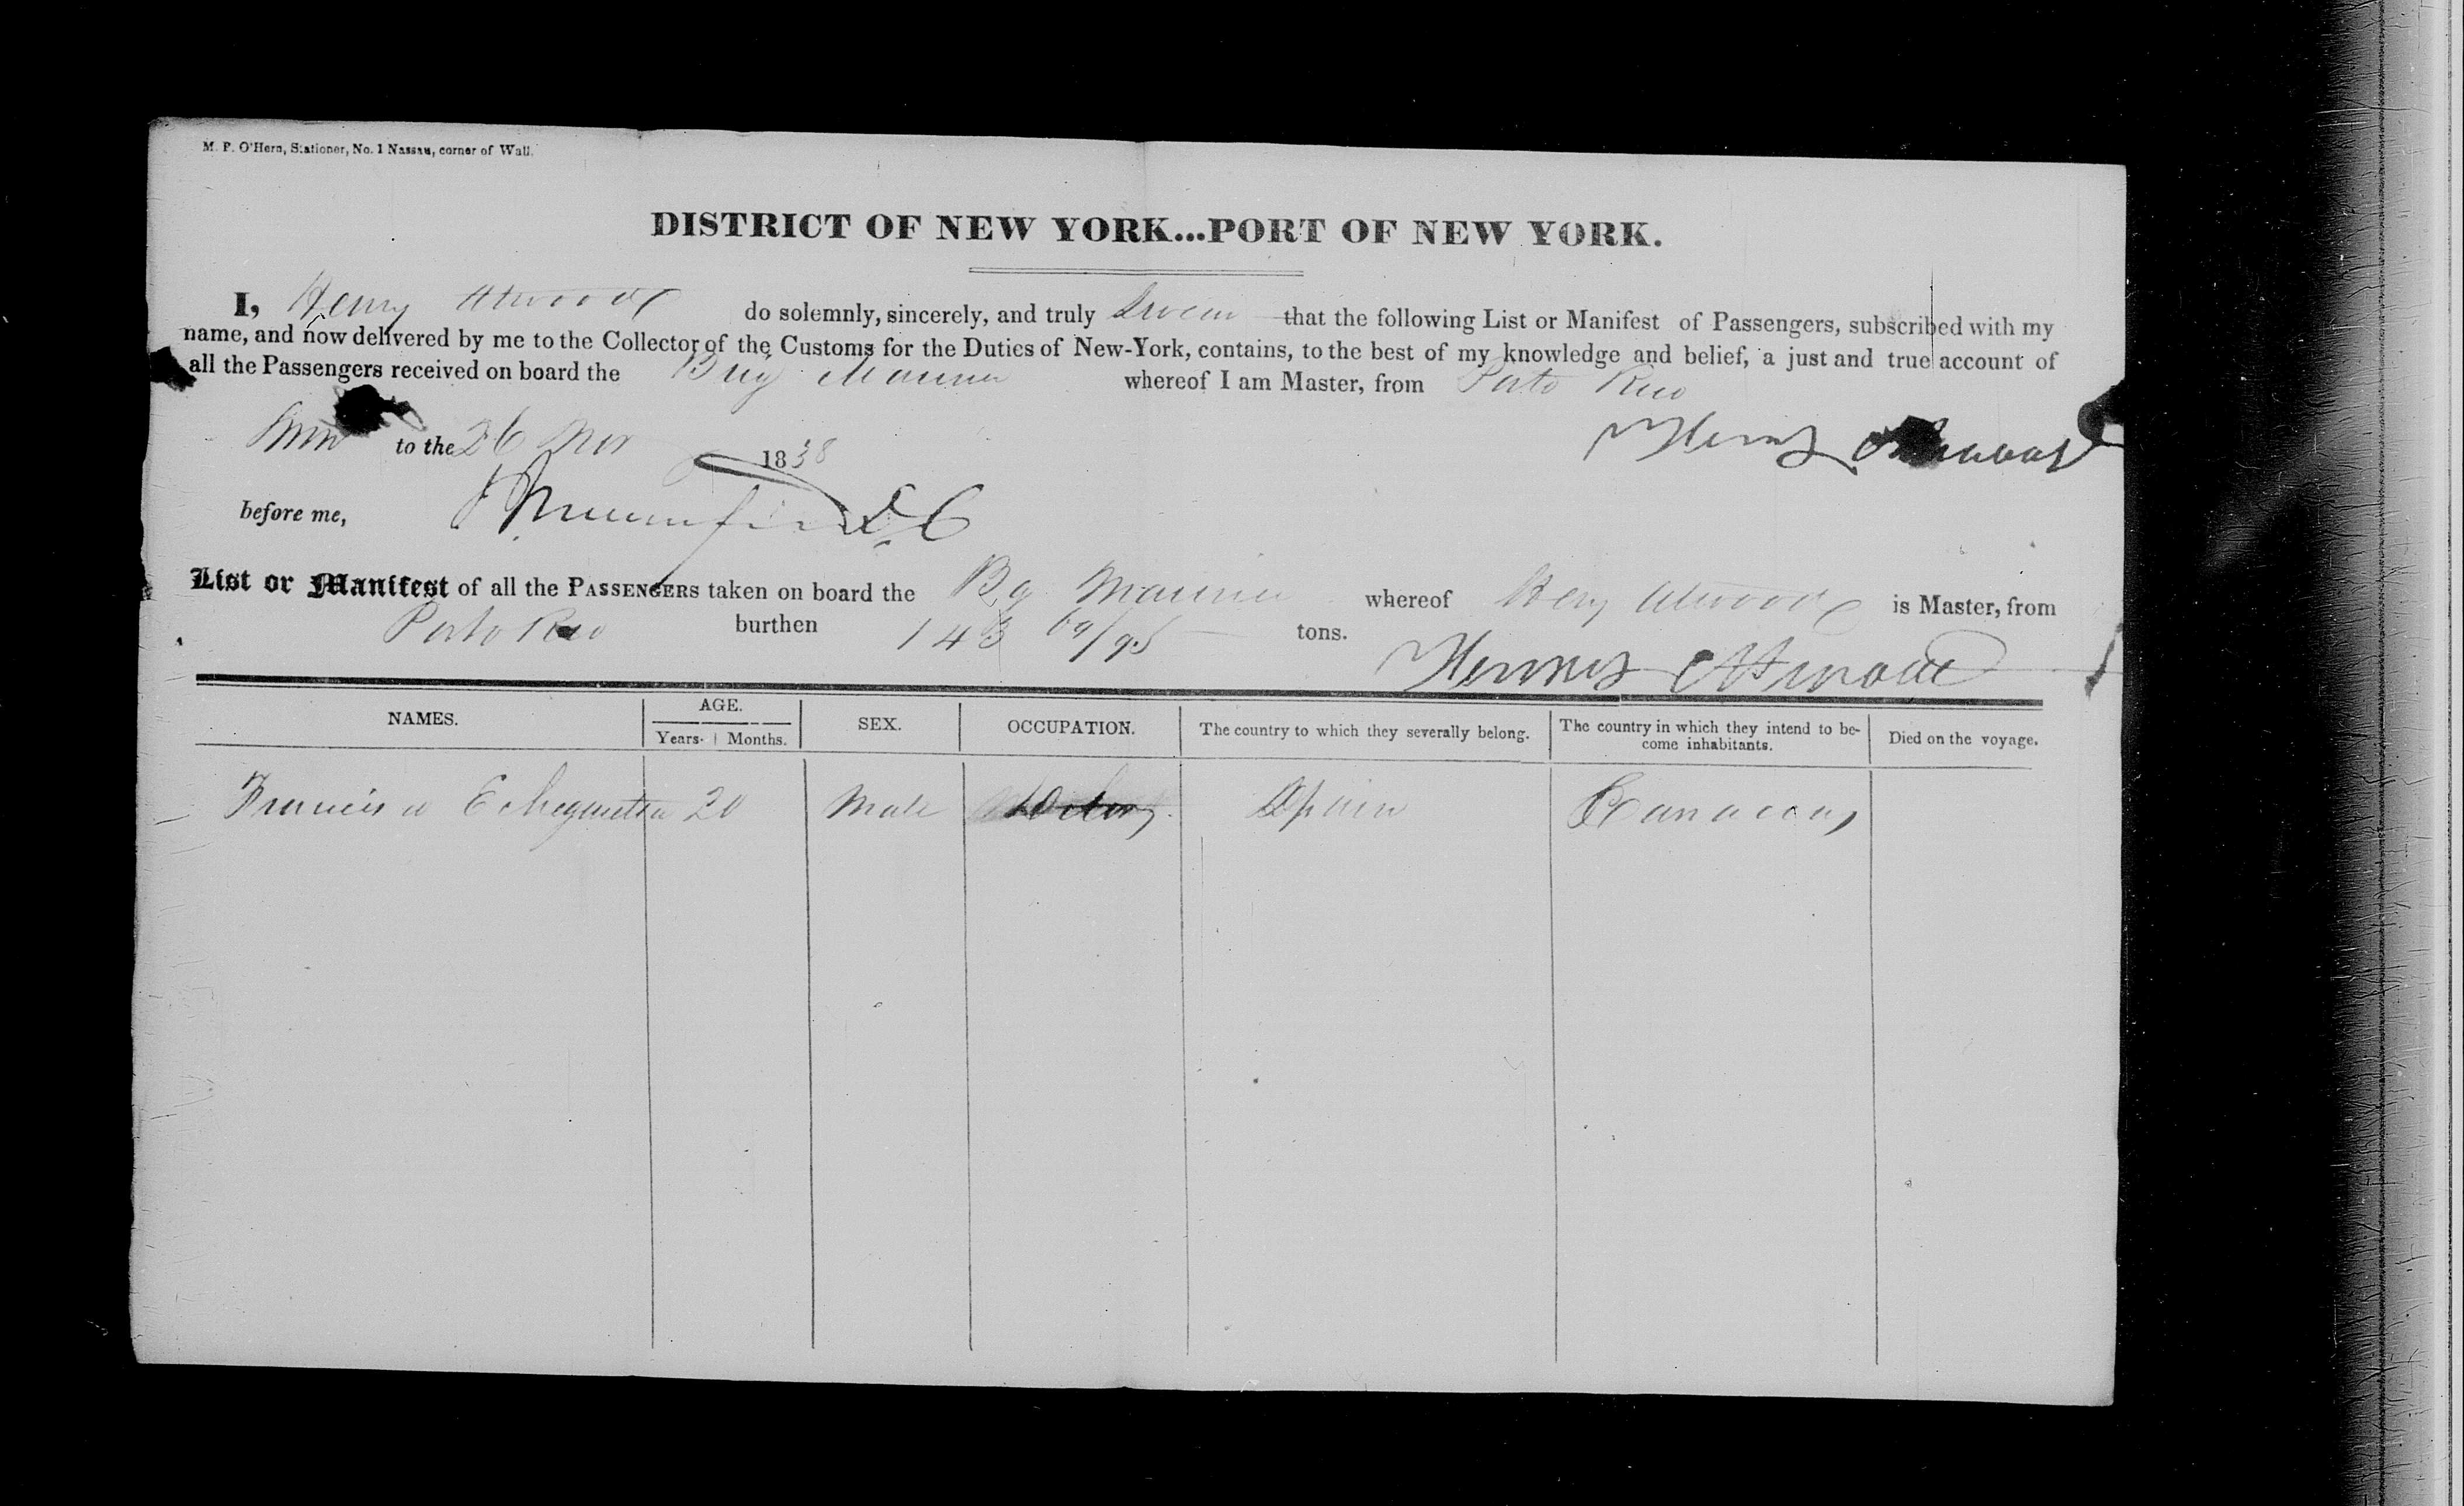 M. P. O'Hern, Stationer, No. 1 Nassau, corner of Wall.
DISTRICT OF NEW YORK...PORT OF NEW YORK.
I, Henry Atwood do solemnly, sincerely, and truly Swear that the following List or Manifest of Passengers, subscribed with my
name, and now delivered by me to the Collector of the Customs for the Duties of New-York, contains, to the best of my knowledge and belief, a just and true account of
all the Passengers received on board the Brig whereof I am Master, from Porto Rico
to the 26 Nov 1838 Henry Atwood
before me, D C
List or Manifest of all the PASSENGERS taken on board the Bg whereof Heny Atwood is Master, from
Porto Rico burthen 143 69/95 tons.
Henry Atwood
NAMES. AGE. SEX. OCCUPATION. The country to which they severally belong. The country in which they intend to be- Died on the voyage.
Years. Months. come inhabitants.
Francisco 20 Male Spain